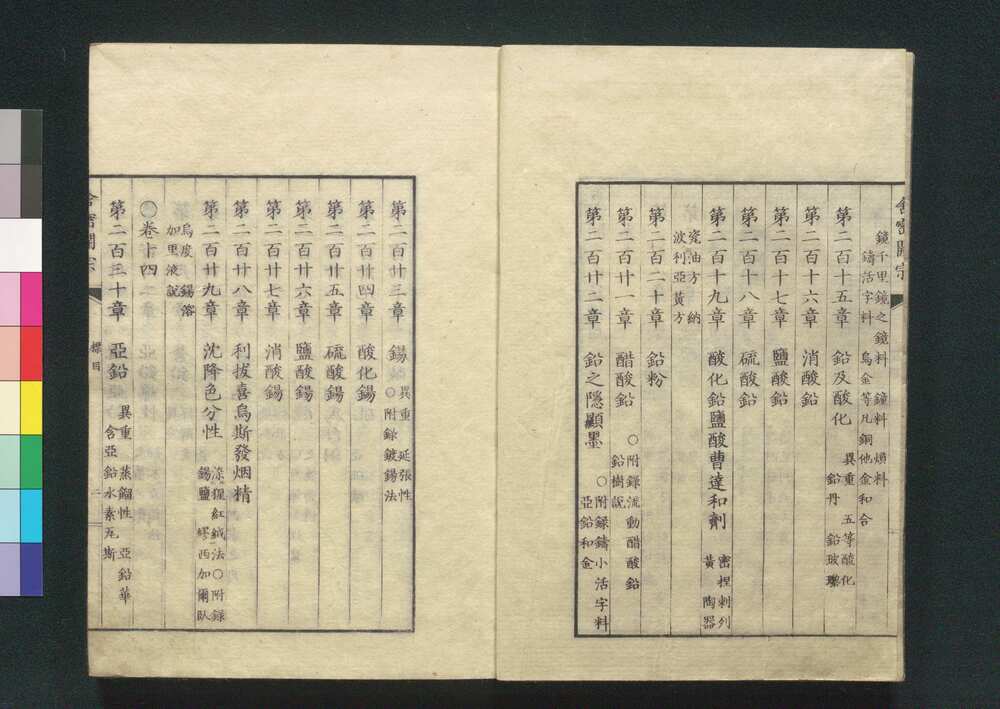 舎密開宗
鏡 千里鏡之鏡料 鐘料 熕料
鋳活字料 烏金等凡銅他金和合
第二百十五章 鉛及酸化 異重 五等酸化
鉛丹 鉛玻瓈
第二百十六章 消酸鉛
第二百十七章 鹽酸鉛
第二百十八章 硫酸鉛
第二百十九章 酸化鉛鹽酸曹達和劑 密捏剌列
黄 陶器
瓷油方 納
波利亞黄方
第二百二十章 鉛粉
第二百廿一章 醋酸鉛 ○附録流動醋酸鉛
鉛樹説
第二百廿二章 鉛之隠顯墨 ○附録鋳小活字料
亞鉛和金
第二百廿三章 錫 異重 延張性
○附録鍍錫法
第二百廿四章 酸化錫
第二百廿五章 硫酸錫
第二百廿六章 鹽酸錫
第二百廿七章 消酸錫
第二百廿八章 利拔喜烏斯發烟精
第二百廿九章 沈降色分性 猩紅絨法○附録
錫鹽 繆西加爾臥
烏度 錫溶
加里液説
○卷十四
第二百三十章 亞鉛 異重 蒸餾性 亞鉛華
含亞鉛水素瓦斯
舎密開宗 標目 二